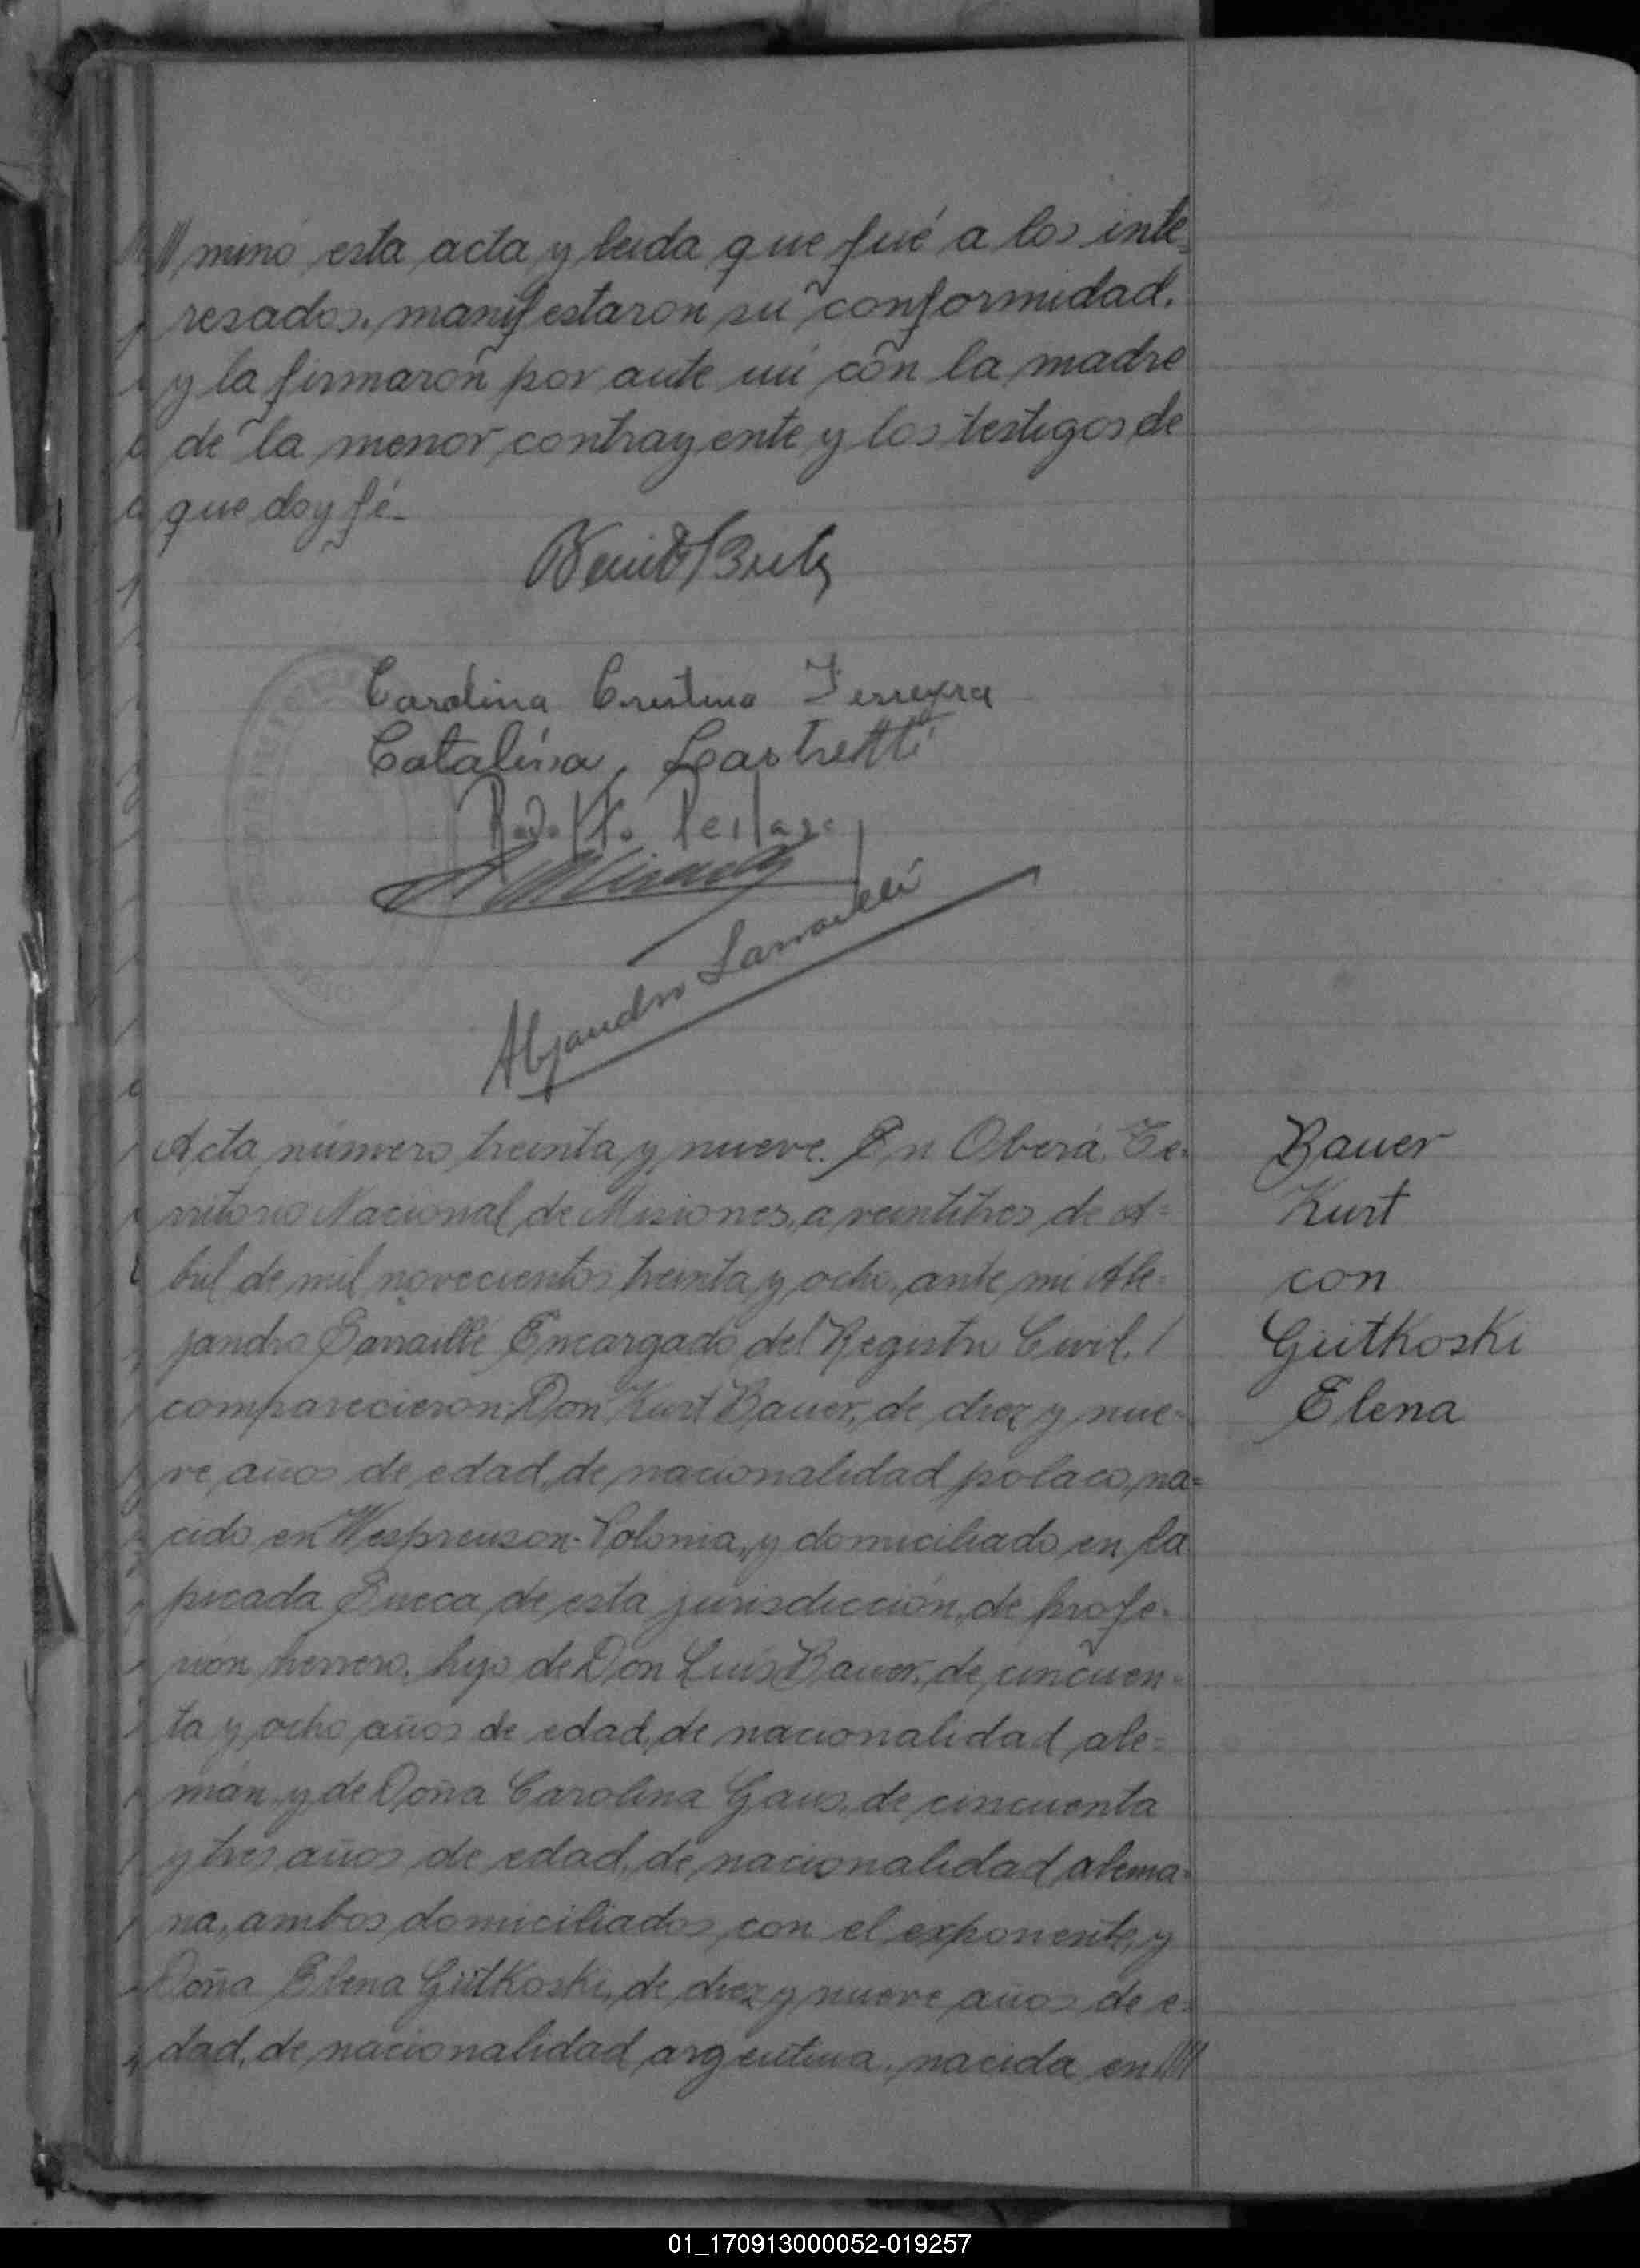 //minó esta acta y leida que fué a los inte=
resados, manifestaron su conformidad,
y la firmaron por ante mi con la madre
de la menor contrayente y los testigos de
que doy fé-
Carolina Cristina Ferreyra
Catalina Lastretti
Alejandro Larraillé
Acta número treinta y nueve. En Oberá, Te=
rritorio Nacional de Misiones, a veintitres de A=
bril de mil novecientos treinta y ocho, ante mi Ale=
jandro Larraillé Encargado del Registro Civil, /
comparecieron: Don Kurt Bauer, de diez y nue=
ve años de edad, de nacionalidad polaco, na=
cido en Wesprenson-Polonia, y domiciliado en la
picada Sueca, de esta jurisdicción, de profe=
sión herrero, hijo de Don Luis Bauer, de cincuen=
ta y ocho años de edad, de nacionalidad ale=
mán, y de Doña Carolina Gaus, de cincuenta
y tres años de edad, de nacionalidad alema=
na, ambos domiciliados con el exponente, y
Doña Elena Gütkoski, de diez y nueve años de e=
dad, de nacionalidad argentina, nacida en ////
Bauer
Kurt
con
Gütkoski
Elena
01_170913000052-019257